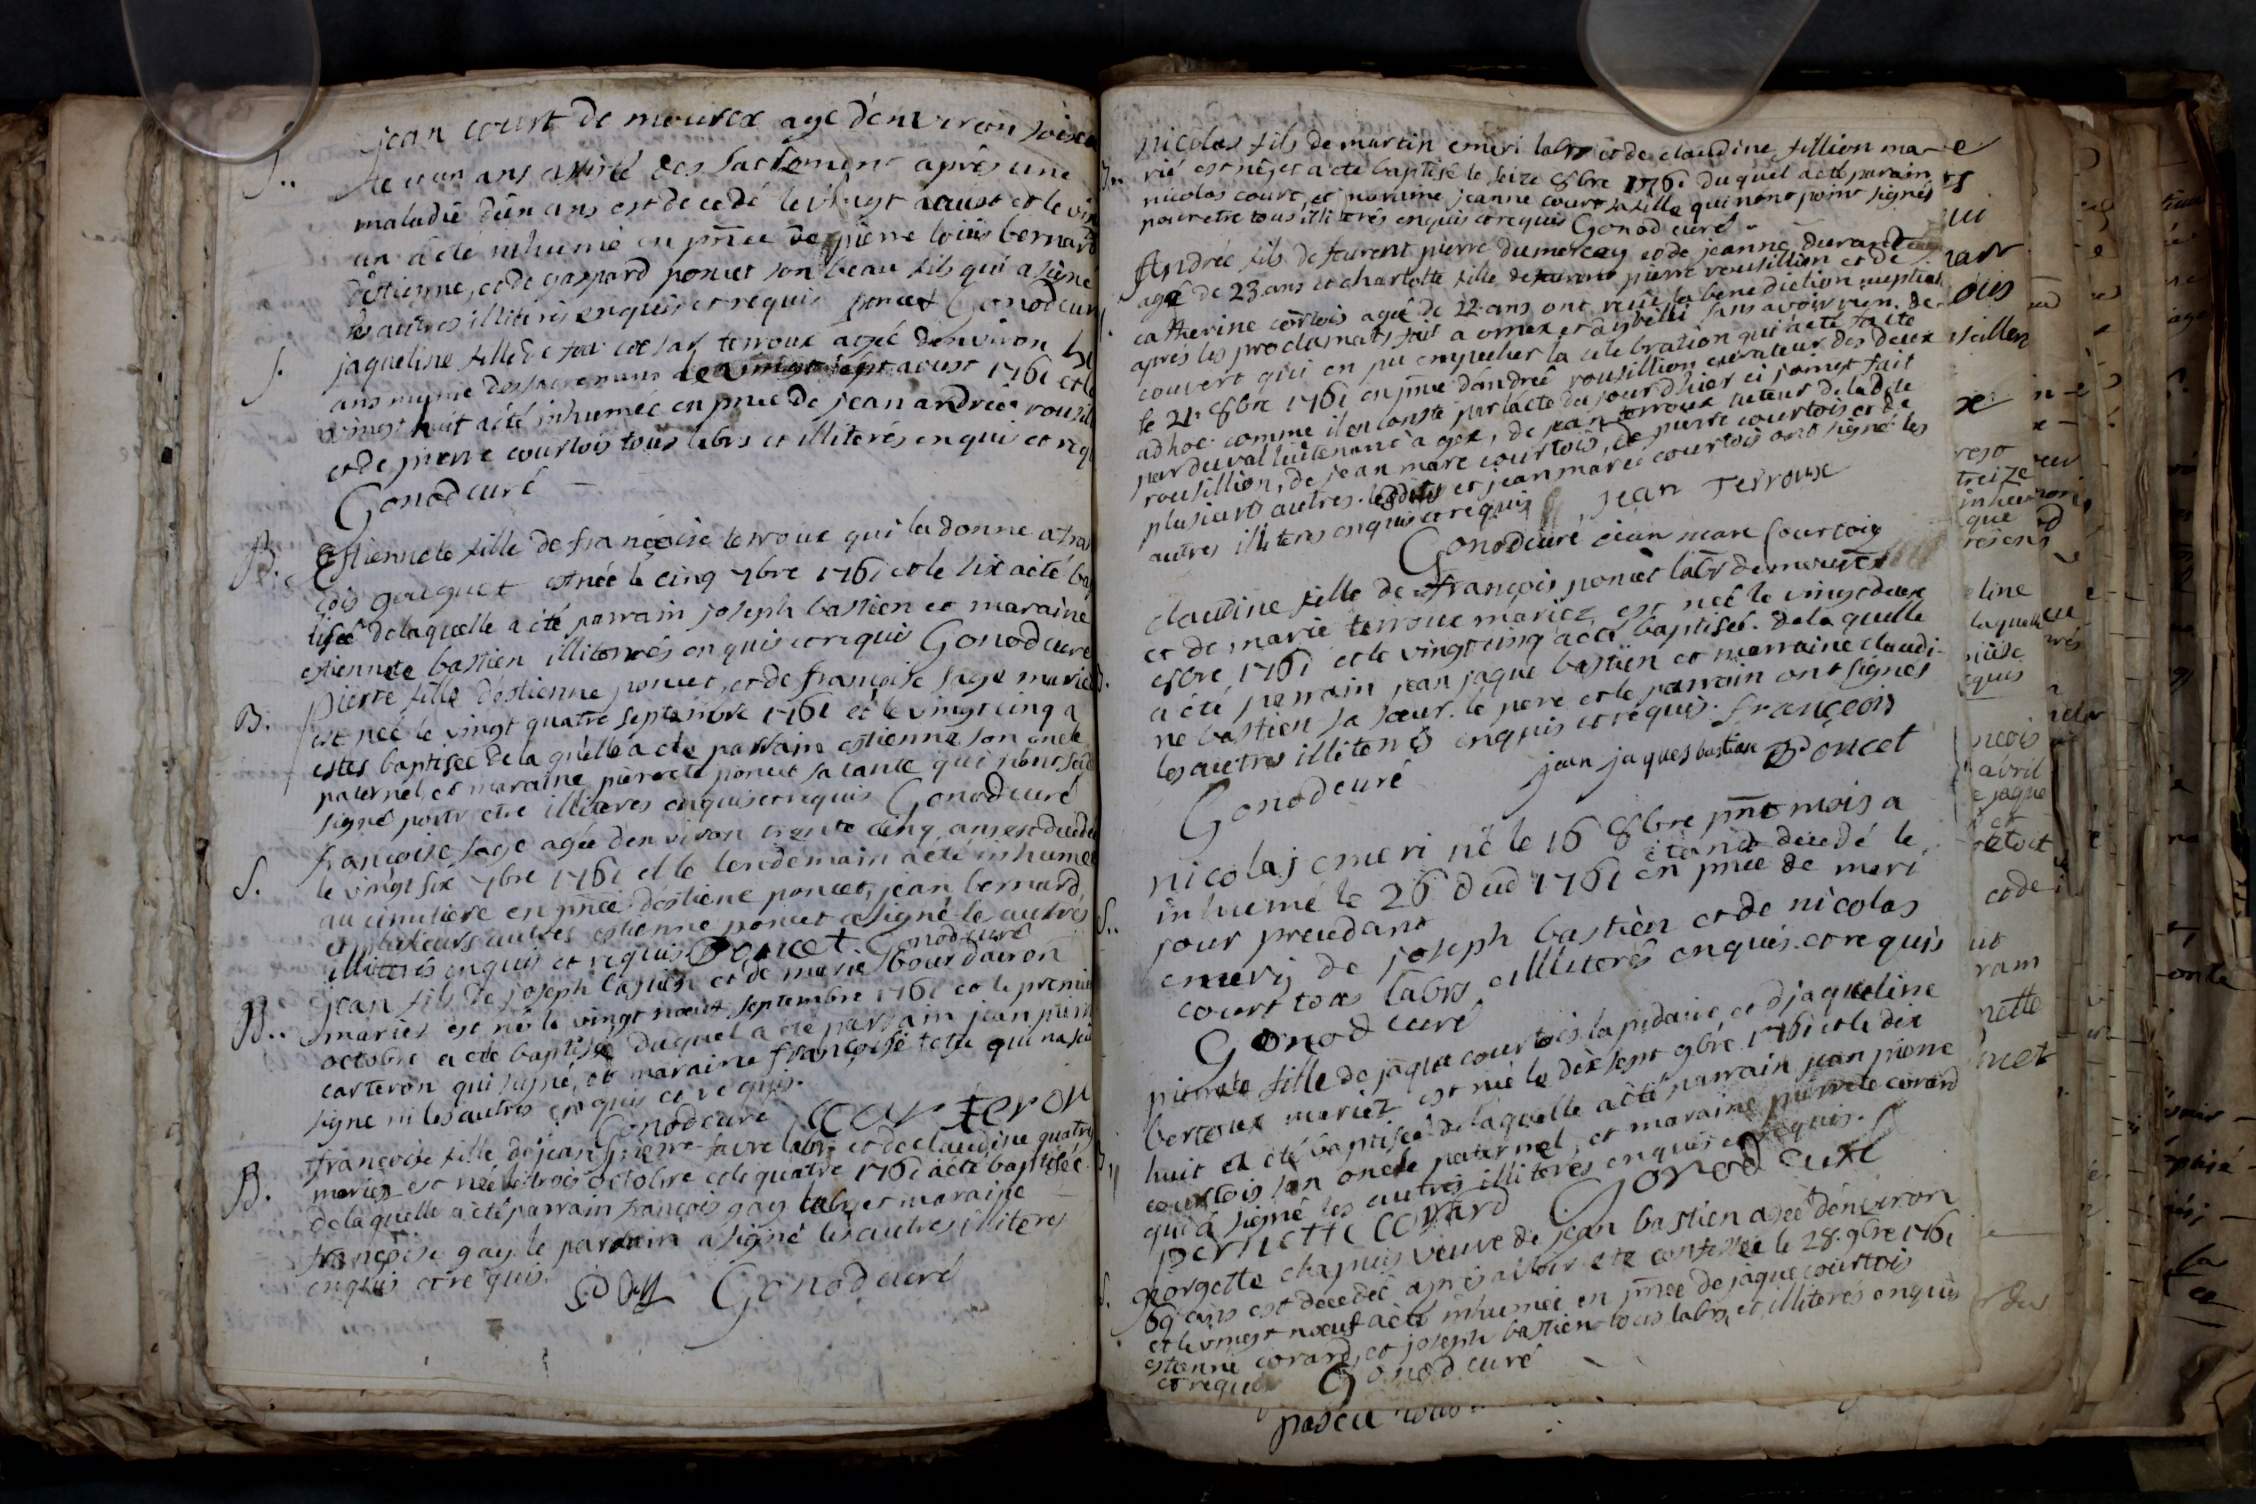 S..
jean court de mourex agé d'environ soixan
te et un ans assisté des sacrement après une
maladie d'un ans est decedé le vingt aoust et le vin
un a été inhumé en pnce de pierre loüis bernard
d'estienne, et de gaspard poncet son beau fils qui a signé
les autres illiterés enquis et requis poncet Gonod curé
S.
jaqueline fille de feu cesar terroux agée d'environ
ans munie des sacremens le vingt sept aoust 1761 et le
vingt huit a été inhumée en pnce de jean andrée rousil
et de pierre courtois tous labrs et illiterés enquis et req
Gonod curé
B.
Estiennete fille de françoise terroux qui la donne a fran
çois gouguet est née le cinq 7bre 1761 et le six a été bap
tisée de laquelle a été parrain joseph bastien et maraine
estiennete bastien illiterés enquis et requis Gonod curé
B.
pierre fille d'estienne poncet, et de françoise sage mariez
est née le vingt quatre septembre 1761 et le vingt cinq a
estes baptisée de la quelle a été parrain estienne son oncle
paternel, et maraine pierrete poncet sa tante qui n'ont
signé pour etre illiteres enquis et requis Gonod curé
S.
françoise sage agée d'environ trente cinq ans est decedée
le vingt six 7bre 1761 et le lendemain a été inhumée
au cimitiere en pnce d'estiene poncet, jean bernard,
et plusieurs autres estienne poncet a signé les autres
illiterés enquis et requis Poncet Gonod curé
B..
jean fils de joseph bastien et de marie bourdairon
mariez est né le vingt noeuf septembre 1761 et le premier
octobre a été baptisé duquel a été parrain jean pierre
carteron qui signé, et maraine françoise
signe ni les autres enquis et requis.
Gonod curé carteron
B.
françoise fille de jean pierre favre labr et de claudine quatre
mariez est née le trois octobre et le quatre 1761 a été baptisée
de laquelle a été parrain françois gay labr, et maraine
françoise gay le parrain a signé les autres illiteres
enquis et requis. Gonod curé
B..
nicolas fils de martin emeri labr et de claudine fillion ma
rié est né, et a été baptisé le seize 8bre 1761 duquel a été parain
nicolas court, et maraine jeanne court sa fille qui n'ont point signés
pour etre tous illiterés enquis et requis Gonod curé
Andrée fils de laurent pierre dumercey et de jeanne durand
agé de 23 ans et charlotte fille de laurent pierre rousillion et de
catherine cortois agée de 22 ans ont reçu la benediction nuptiale
après les proclamats fait a ornex et sans avoir rien de
couvert qui en pu empecher la celebration qui a été faite
le 21. 8bre 1761 en pnce d'andrée rousillion curateur des deux
ad hoc comme il en conste par l'acte du jour d'hier ci joinct fait
par duval lieutenant à gex, de jean terroux tuteur de la de
rousillion, de jean marc courtois, de pierre courtois et de
plusieurs autres. lesdits et jean marc courtois ont signé les
autres illiteres enquis et requis jean Terroux
Gonod curé jean marc Courtois
claudine fille de françois poncet labr de mourex
et de marie terroux mariez est née le vingt deux
8bre 1761 et le vingt cinq a été baptisée. de laquelle
a été parrain jean jaque bastien et marraine claudi-
ne bastien sa soeur. le pere et le parrain ont signés
les autres illiterés enquis et requis. françois
Gonod curé jean jaques bastian Poncet
S..
nicolas emeri né le 16 8bre pnt mois a
inhumé le 26 dud 1761 étand decedé le
jour precedant en pnce de
emeri, de joseph bastien et de nicolas
court tous labrs illiterés enquis et requis
Gonod curé
B..
pierrete fille de jaque courtois lapidaire, et djaqueline
bertoux mariez est née le dix sept 9bre 1761 et le dix
huit a été baptisée de laquelle a été parrain jean pierre
courtois son oncle paternel, et maraine pierrete corard
qui a signé les autres illiteres enquis et requis.
pernette Corard Gonod curé
S.
georgette chapuis veuve de jean bastien agée d'environ
69 ans est decedée après avoir été confessée le 28. 9bre 1761
et le vingt noeuf a été inhumée en pnce de jaque courtois
estienne corard, et joseph bastien tous labrs, et illiterés enquis
et requis Gonod curé